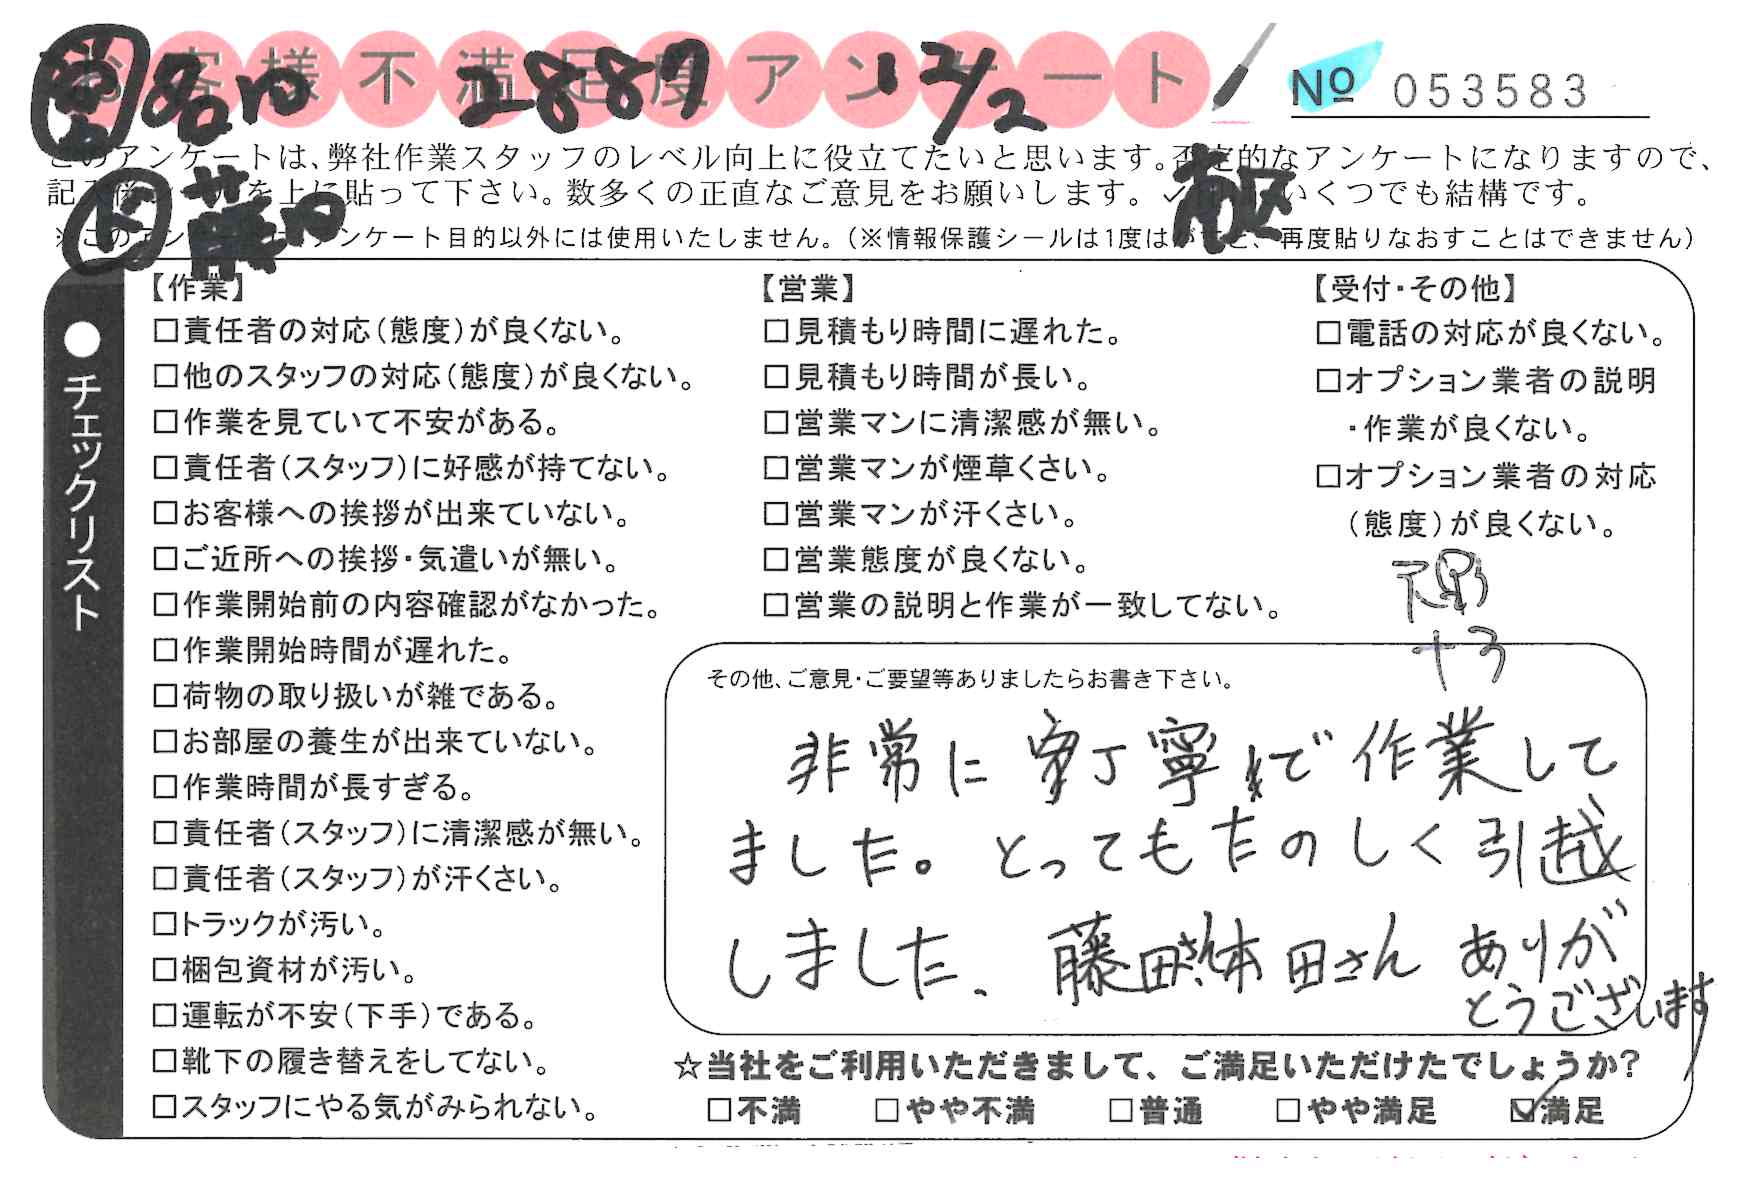 お客様不満足度アンケート
№ 053583
2887 12/2
このアンケートは、弊社作業スタッフのレベル向上に役立てたいと思います。否定的なアンケートになりますので、
記入後 を上に貼って下さい。数多くの正直なご意見をお願いします。 いくつでも結構です。
※このアンケートは、アンケート目的以外には使用いたしません。(※情報保護シールは1度はがすと、再度貼りなおすことはできません)
●チェックリスト
【作業】
□責任者の対応(態度)が良くない。
□他のスタッフの対応(態度)が良くない。
□作業を見ていて不安がある。
□責任者(スタッフ)に好感が持てない。
□お客様への挨拶が出来ていない。
□ご近所への挨拶・気遣いが無い。
□作業開始前の内容確認がなかった。
□作業開始時間が遅れた。
□荷物の取り扱いが雑である。
□お部屋の養生が出来ていない。
□作業時間が長すぎる。
□責任者(スタッフ)に清潔感が無い。
□責任者(スタッフ)が汗くさい。
□トラックが汚い。
□梱包資材が汚い。
□運転が不安(下手)である。
□靴下の履き替えをしてない。
□スタッフにやる気がみられない。
【営業】
□見積もり時間に遅れた。
□見積もり時間が長い。
□営業マンに清潔感が無い。
□営業マンが煙草くさい。
□営業マンが汗くさい。
□営業態度が良くない。
□営業の説明と作業が一致してない。
【受付・その他】
□電話の対応が良くない。
□オプション業者の説明
・作業が良くない。
□オプション業者の対応
(態度)が良くない。
その他、ご意見・ご要望等ありましたらお書き下さい。
非常に丁寧で作業して
ました。とってもたのしく引越
しました、藤田さん本田さん ありが
とうございます
☆当社をご利用いただきまして、ご満足いただけたでしょうか?
□不満 □やや不満 □普通 □やや満足 ☑満足